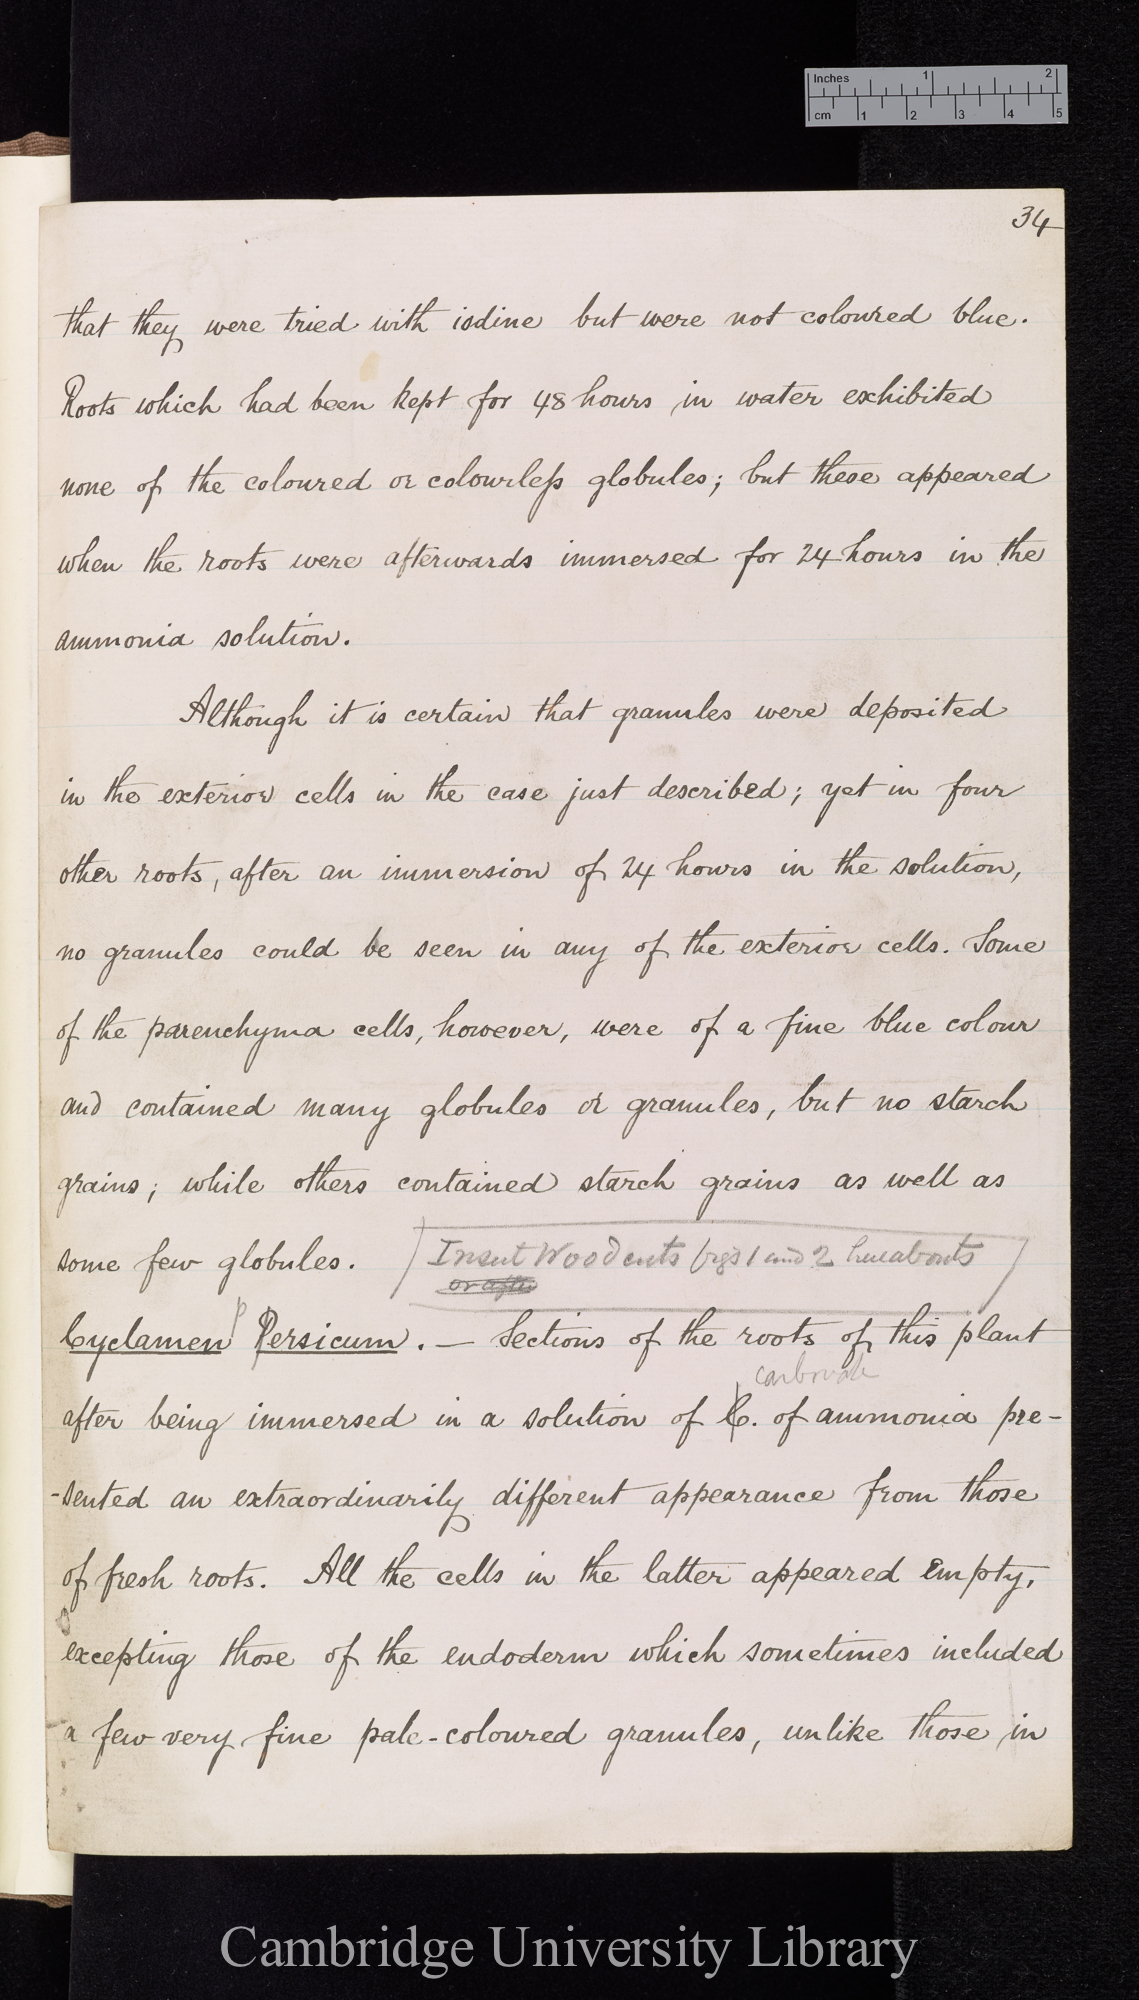 Inches 1 2
cm 1 2 3 4 5
34
that they were tried with iodine but were not coloured blue.
Roots which had been kept for 48 hours in water exhibited
none of the coloured or colourless globules; but these appeared
when the roots were afterwards immersed for 24 hours in the
ammonia solution.
Although it is certain that granules were deposited
in the exterior cells in the case just described; yet in four
other roots, after an immersion of 24 hours in the solution,
no granules could be seen in any of the exterior cells. Some
of the parenchyma cells, however, were of a fine blue colour
and contained many globules or granules, but no starch
grains; while others contained starch grains as well as
some few globules.
Insert Woodcuts figs 1 and 2 hereabouts
or after
p
Cyclamen Persicum. — Sections of the roots of this plant
carbonate
after being immersed in a solution of C. of ammonia pre-
-sented an extraordinarily different appearance from those
of fresh roots. All the cells in the latter appeared empty,
excepting those of the endoderm which sometimes included
a few very fine pale-coloured granules, unlike those in
Cambridge University Library